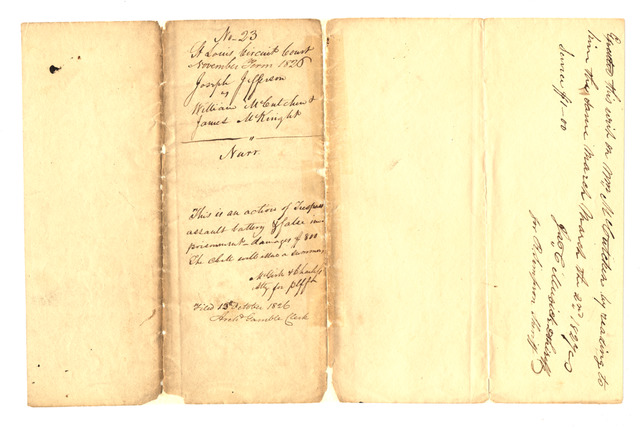 No 23
St Louis Circuit Court
November Term 1826
Joseph Jefferson
vs
William McCutchen &
James McKnight
Narr.
This is an action of Trespass
assault battery & false im-
prisonment damages $ 800
The Clerk will issue a summons
Atty for plff
Filed 13th October 1826
Archd Gamble Clerk
Executed this writ on Wm McCutchen by reading to
him the same March 22nd 1827
Service $1-00
for Sheriff